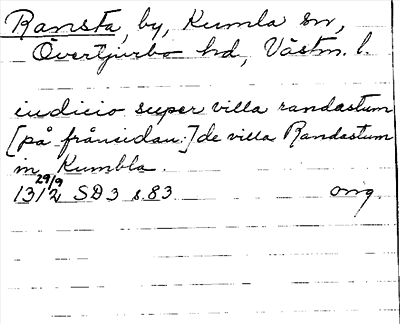 Ransta, by, Kumla sn,
Övertjurbo hd, Västm. l.
iudicio super villa randastum
[på frånsidan:] de villa Randastum
in Kumbla.
29/9
1312 SD 3 s. 83 orig.